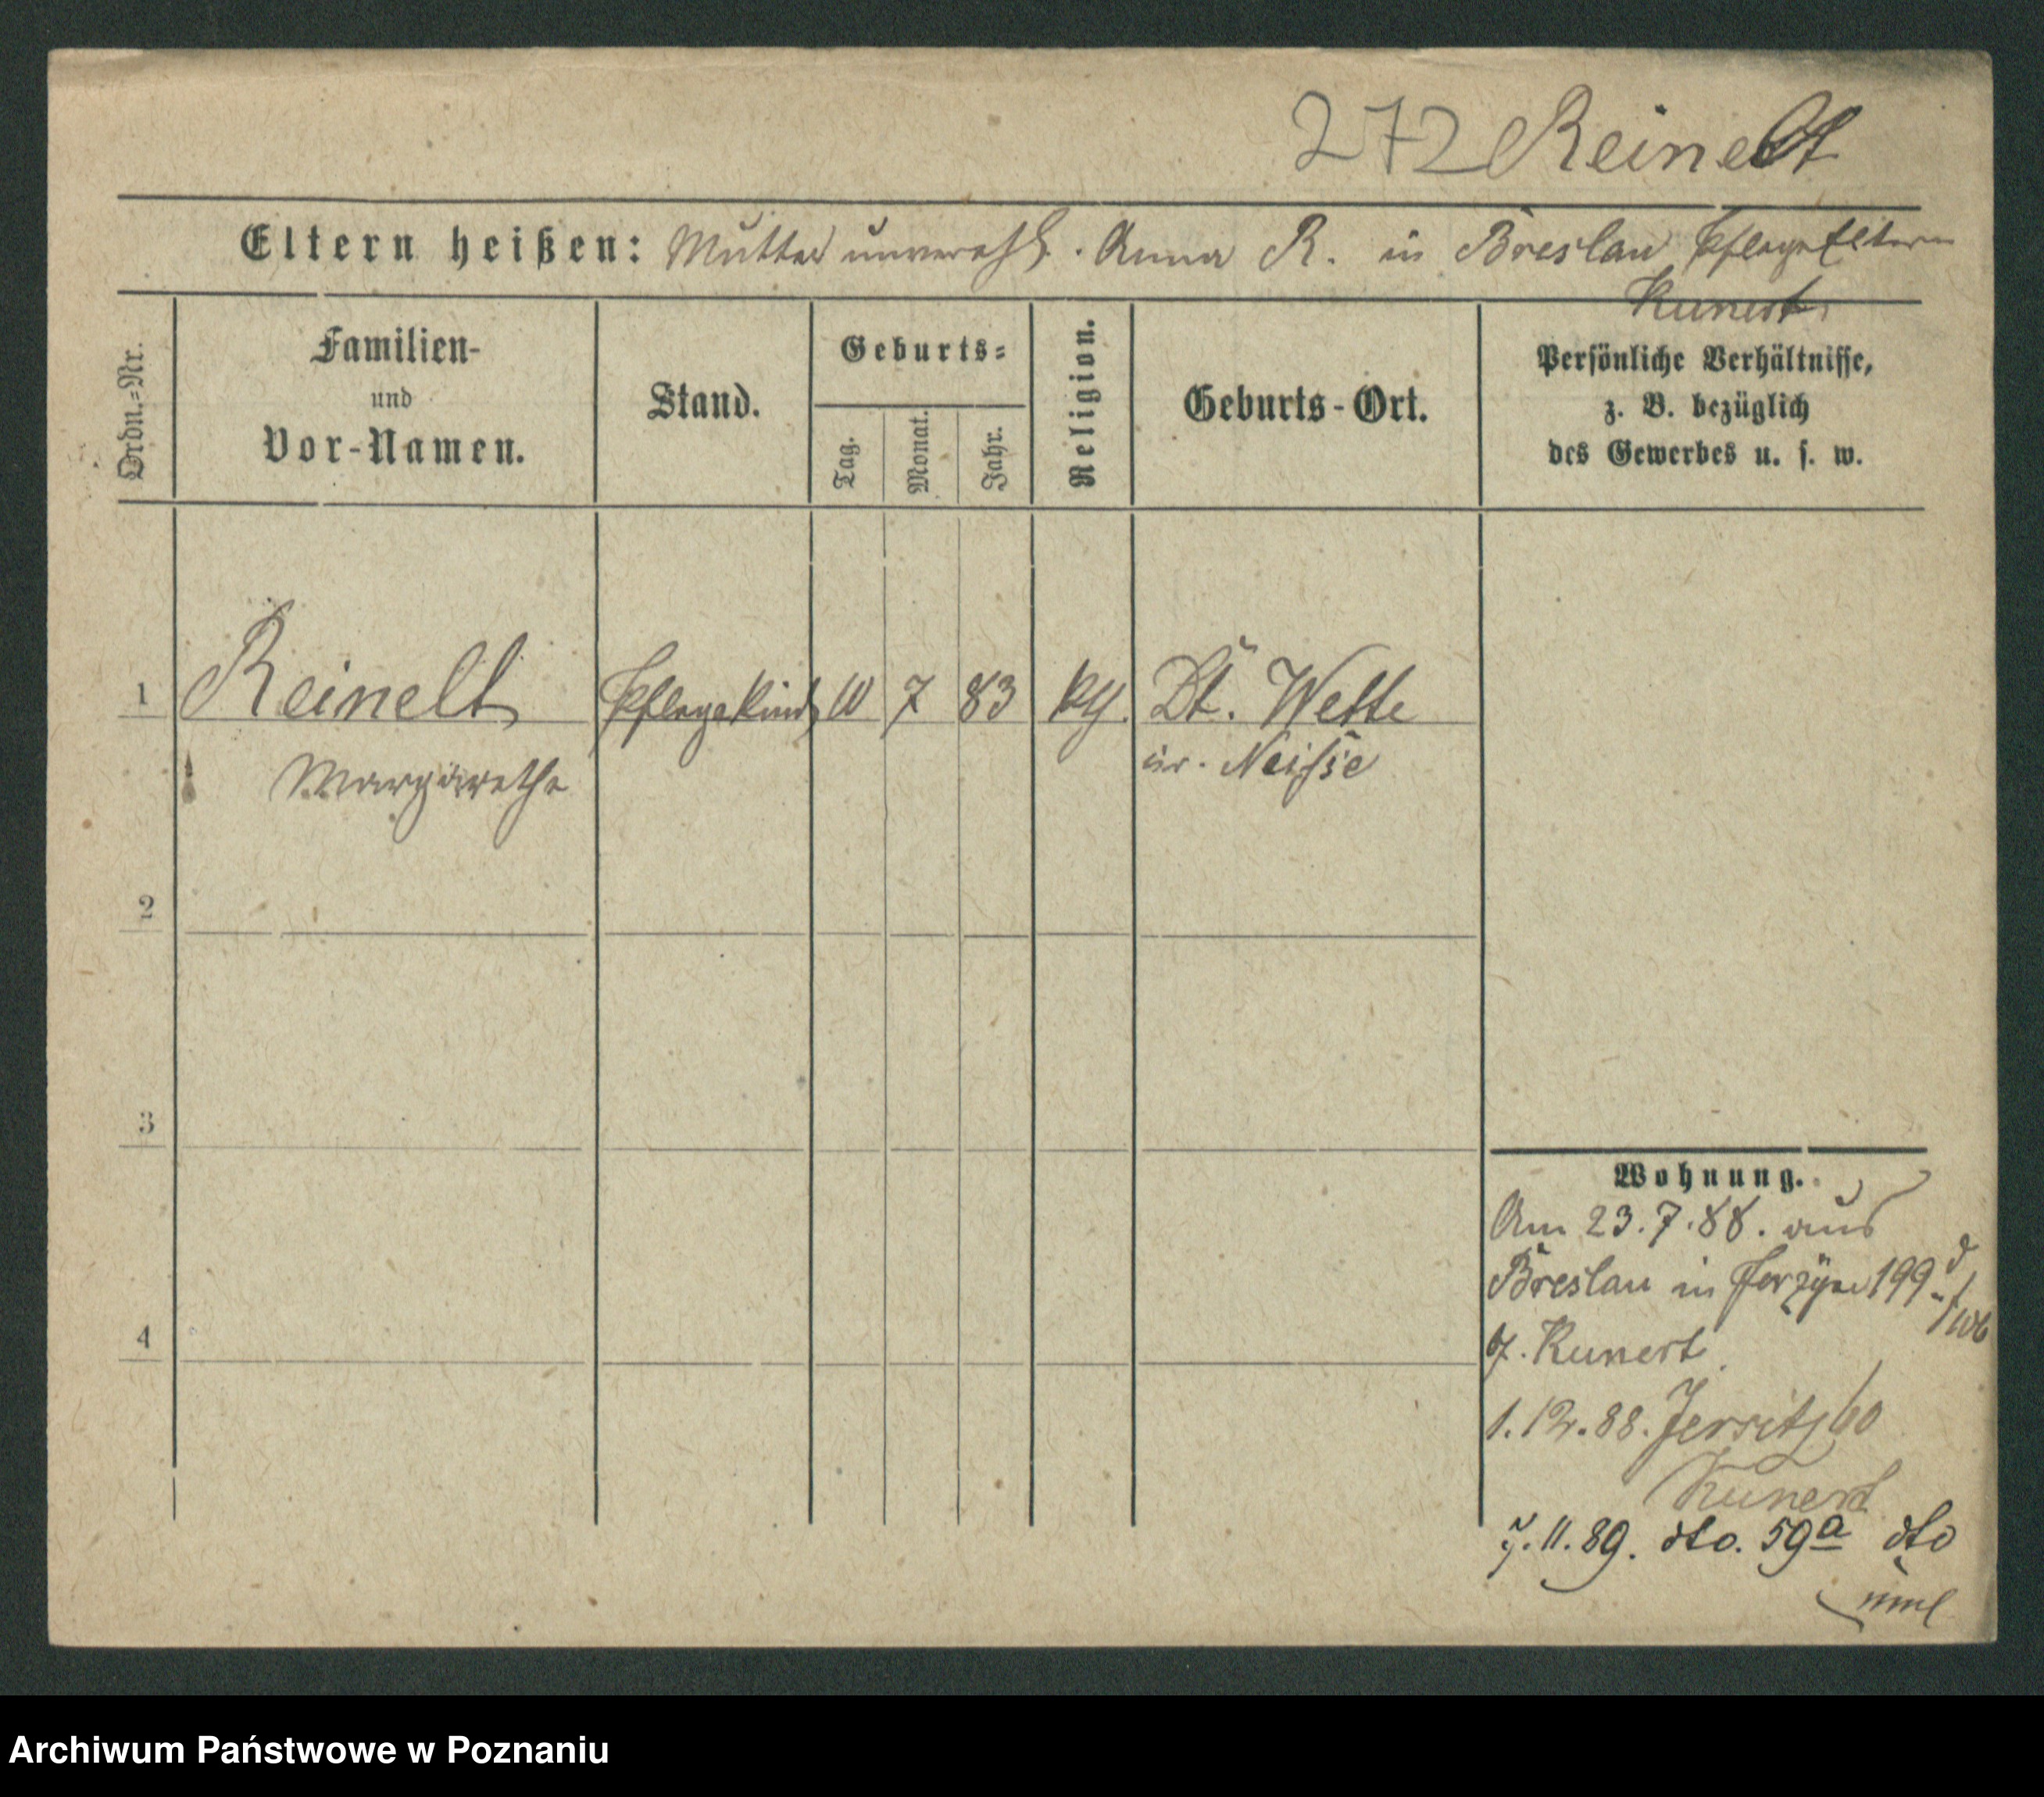 272 Reinelt
Eltern heißen: Mutter unverehl. Anna R. in Breslau Pflegeeltern
Kunert
Ordn.-Nr.
Familien-
und
Vor-Namen.
Stand.
Geburts-
Tag.
Monat.
Jahr.
Religion.
Geburts-Ort.
Persönliche Verhältnisse,
z. B. bezüglich
des Gewerbes u. s. w.
1 Reinelt Pflegekind 10 7 83 kth. Dt. Wette
Margarethe
Kr. Neisse
2
3
4
Wohnung.
Am 23.7.88. aus
Breslau in Jerzyce 199
b. Kunert
1.12.88. Jersitz 60
Kunert
7.11.89. dto. 59a dto